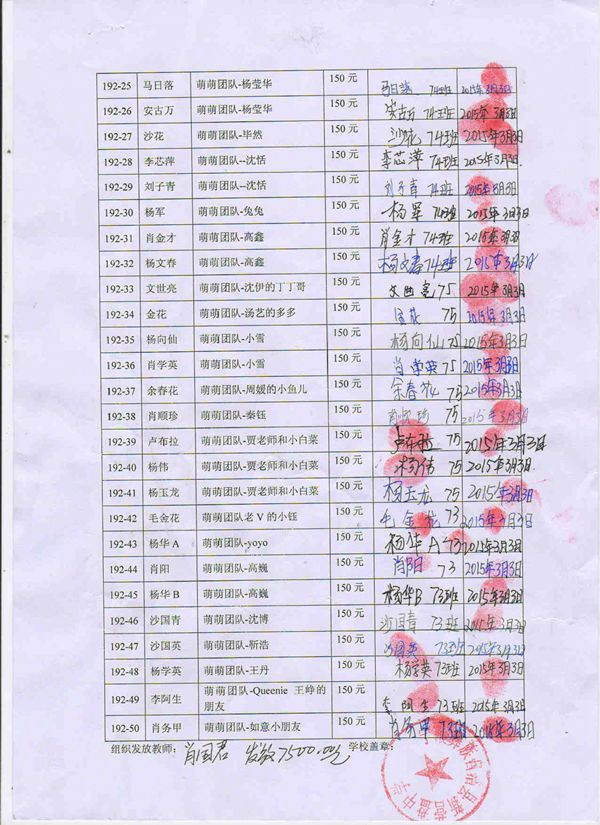 192-25 马日落 萌萌团队-杨莹华 150 元 马日落 74班 2015年3月3日
192-26 安古万 萌萌团队-杨莹华 150 元 安古万 74班 2015年3月3日
192-27 沙花 萌萌团队-毕然 150 元 沙花 74班 2015年3月3日
192-28 李芯萍 萌萌团队-沈恬 150 元 李芯萍 74班 2015年3月3日
192-29 刘子青 萌萌团队-沈恬 150 元 刘子青 74班 2015年3月3日
192-30 杨军 萌萌团队-兔兔 150 元 杨军 74班 2015年3月3日
192-31 肖金才 萌萌团队-高鑫 150 元 肖金才 74班 2015年3月3日
192-32 杨文春 萌萌团队-高鑫 150 元 杨文春 74班 2015年3月3日
192-33 文世亮 萌萌团队-沈伊的丁丁哥 150 元 文世亮 75 2015年3月3日
192-34 金花 萌萌团队-汤艺的多多 150 元 金花 75 2015年3月3日
192-35 杨向仙 萌萌团队-小雪 150 元 杨向仙 75 2015年3月3日
192-36 肖学英 萌萌团队-小雪 150 元 肖学英 75 2015年3月3日
192-37 余春花 萌萌团队-周媛的小鱼儿 150 元 余春花 75 2015年3月3日
192-38 肖顺珍 萌萌团队-秦钰 150 元 肖顺珍 75 2015年3月3日
192-39 卢布拉 萌萌团队-贾老师和小白菜 150 元 卢布拉 75 2015年3月3日
192-40 杨伟 萌萌团队-贾老师和小白菜 150 元 杨伟 75 2015年3月3日.
192-41 杨玉龙 萌萌团队-贾老师和小白菜 150 元 杨玉龙 75 2015年3月3日
192-42 毛金花 萌萌团队老 V 的小钰 150 元 毛金花 73 2015年3月3日
192-43 杨华 A 萌萌团队-yoyo 150 元 杨华A 73 2015年3月3日
192-44 肖阳 萌萌团队-高巍 150 元 肖阳 73 2015年3月3日
192-45 杨华 B 萌萌团队-高巍 150 元 杨华B 73班 2015年3月3日
192-46 沙国青 萌萌团队-沈博 150 元 沙国青 73班 2015年3月3日
192-47 沙国英 萌萌团队-靳浩 150 元 沙国英 73班 2015年3月3日
192-48 杨学英 萌萌团队-王丹 150 元 杨学英 73班 2015年3月3日
192-49 李阿生 萌萌团队-Queenie 王峥的 150 元 李阿生 73班 2015年3月3日
朋友
192-50 肖务甲 萌萌团队-如意小朋友 150 元 肖务甲 73班 2015年3月3日
组织发放教师: 肖国君 发放7500.00元 学校盖章:
族自治县新营盘中学